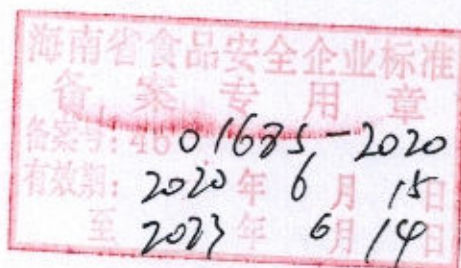 海南省食品安全企业标准
备案专用章
备案号:46 01685-2020
有效期:2020年6月15日
至 2023年6月14日